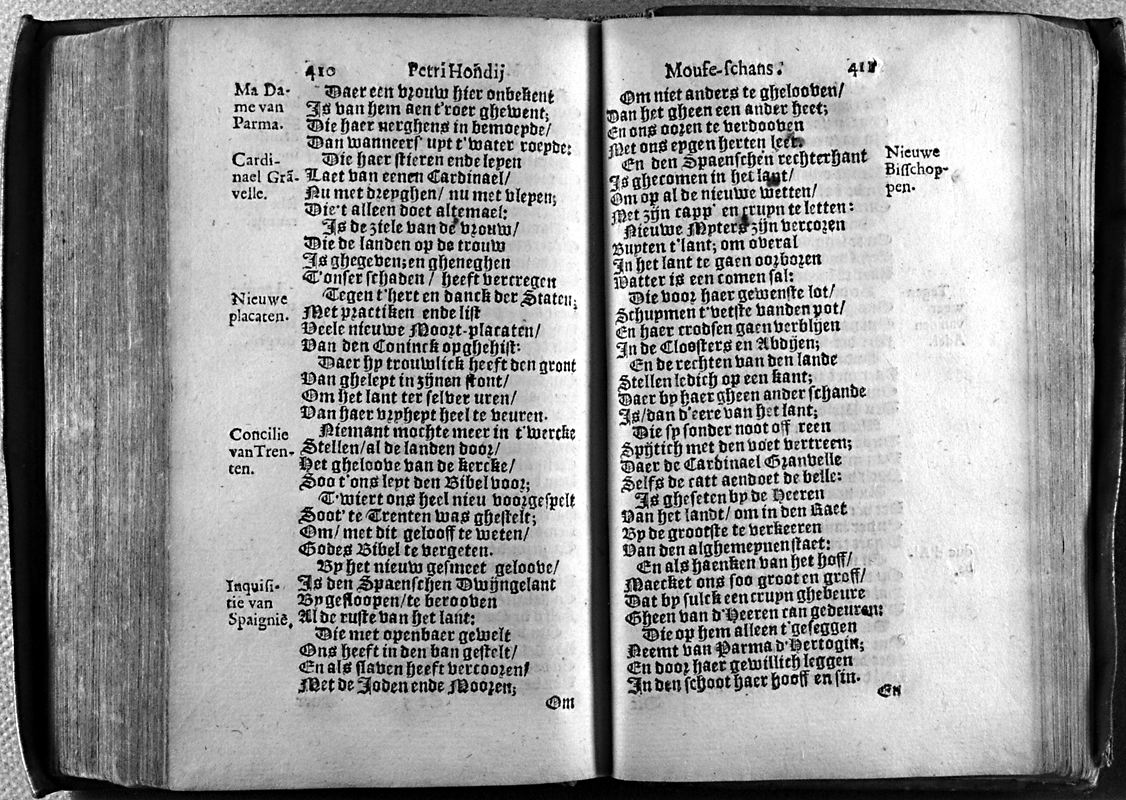 410 Petri Hondij
Ma Da-
me van
Parma.
Cardi-
nael Grã-
velle.
Nieuwe
placaten.
Concilie
van Tren-
ten.
Inquisi-
tie van
Spaignie.
Daer een vrouw hier onbekent
Is van hem aen t'roer ghewent;
Die haer nerghens in bemoeyde/
Dan wanneers' upt t'water roeyde:
Die haer stieren ende leyen
Laet van eenen Cardinael/
Nu met dreyghen/ nu met vleyen;
Die't alleen doet altemael:
Is de ziele van de vrouw/
Die de landen op de trouw
Is ghegeven; en gheneghen
T'onser schaden/ heeft vercregen
Tegen t'hert en danck der Staten;
Met practiken ende list
Veele nieuwe Moort-placaten/
Van den Coninck opghehist:
Daer hy trouwlick heeft den gront
Van gheleyt in zijnen stont/
Om het lant ter selver uren/
Van haer vryheyt heel te veuren.
Niemant mochte meer in t'wercke
Stellen/ al de landen door/
Het gheloove van de kercke/
Soo t'ons leyt den Bibel voor;
T'wiert ons heel nieu voorgespelt
Soot' te Trenten was ghestelt;
Om/ met dit gelooff te weten/
Godes Bibel te vergeten.
By het nieuw gesmeet geloove/
Is den Spaenschen Dwijngelant
Bygesloopen/ te berooven
Al de ruste van het lant:
Die met openbaer gewelt
Ons heeft in den ban gestelt/
En als slaven heeft vercooren/
Met de Joden ende Mooren;
Om
Mouse-schans. 411
Om niet anders te ghelooven/
Dan het gheen een ander heet;
En ons ooren te verdooven
Met ons eygen herten leet.
En den Spaenschen rechterhant
Is ghecomen in het lant/
Om op al de nieuwe wetten/
Met zijn capp' en cruyn te letten:
Nieuwe Myters zijn vercoren
Buyten t'lant; om overal
In het lant te gaen oorboren
Watter is een comen sal:
Die voor haer gewenste lot/
Schuymen t'vetste vanden pot/
En haer crodsen gaen verblijen
In de Cloosters en Abdijen;
En de rechten van den lande
Stellen ledich op een kant;
Daer by haer gheen ander schande
Is/ dan d'eere van het lant;
Die sy sonder noot off reen
Spijtich met den voet vertreen;
Daer de Cardinael Granvelle
Selfs de catt aendoet de belle:
Is gheseten by de Heeren
Van het landt/ om in den Raet
By de grootste te verkeeren
Van den alghemeynen staet:
En als haenken van het hoff/
Maecket ons soo groot en groff/
Dat by sulck een cruyn ghebeure
Gheen van d'Heeren can gedeuren:
Die op hem alleen t'geseggen
Neemt van Parma d'Hertogin;
En door haer gewillich leggen
In den schoot haer hooff en sin.
En
Nieuwe
Bisschop-
pen.